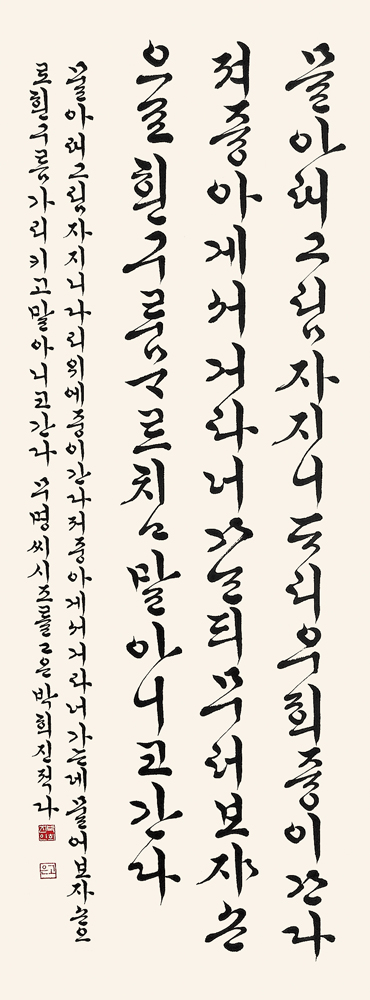 믈아래그림자지니ᄃᆞ리우희즁이간다
져즁아게서거라너가ᄂᆞᆫ듸무러보쟈손
으로흰구룸ᄀᆞᄅᆞ치고말아니코간다
물아래그림자지니다리위에중이간다저중아게서거라너가는데물어보자손으
로흰구름가리키고말아니코간다 무명씨시조를고은박희진적다